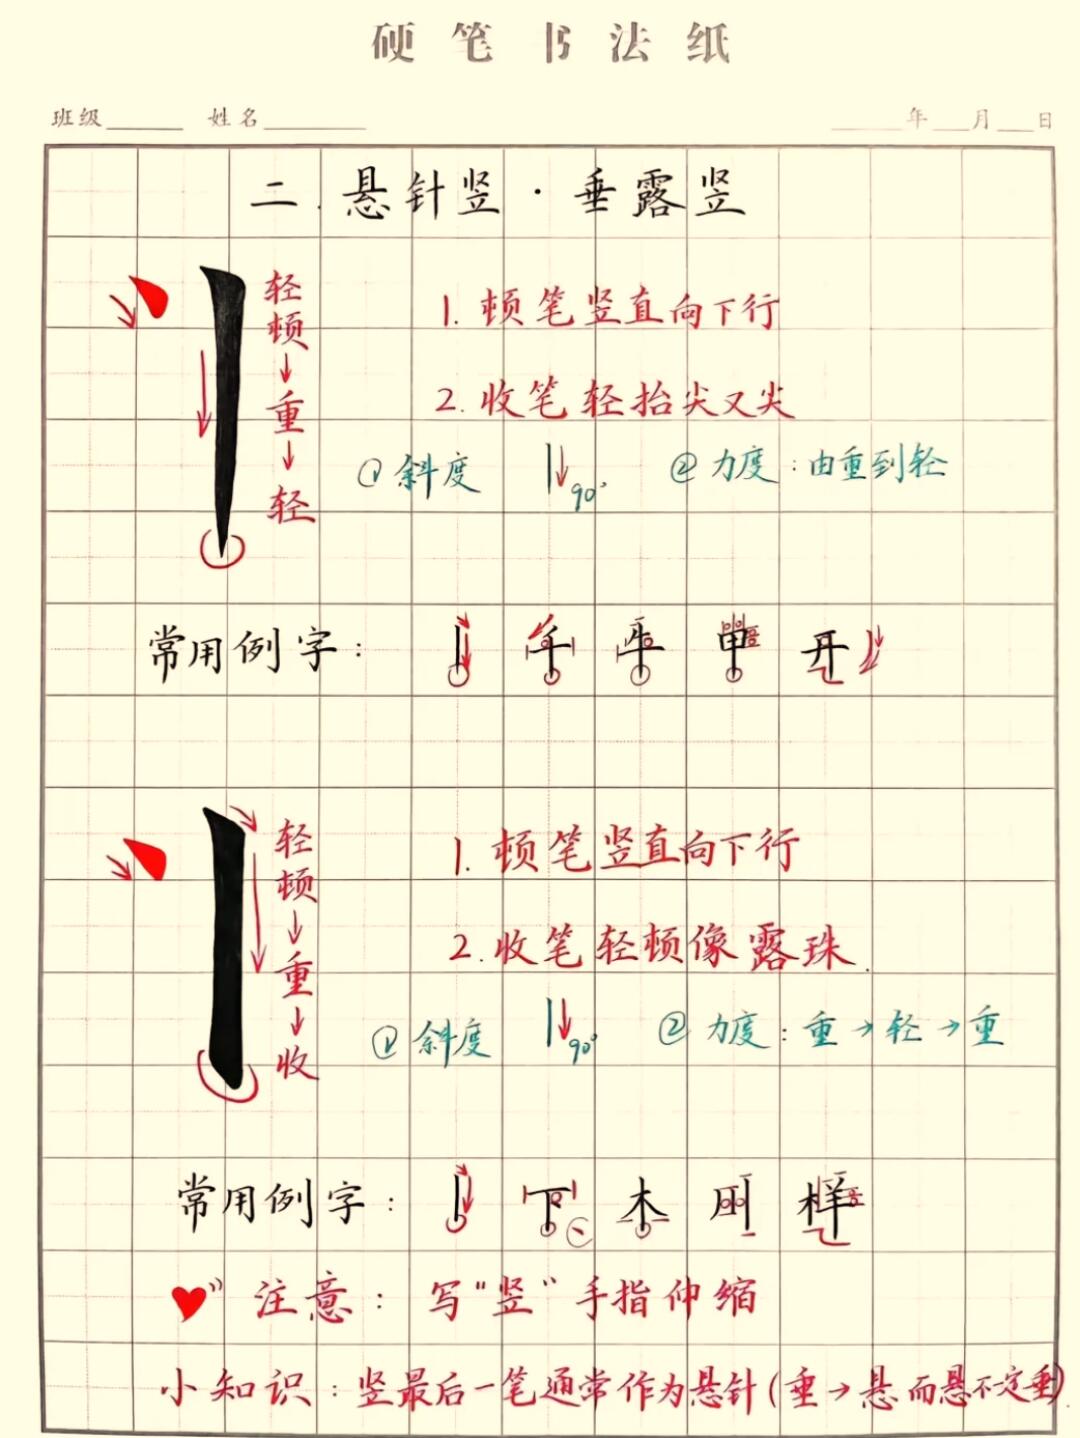 硬笔书法纸
班级 姓名 年 月 日
二.悬针竖·垂露竖
轻顿→重→轻
1.顿笔竖直向下行
2.收笔轻抬尖又尖
①斜度 90° ②力度:由重到轻
常用例字: 丨 千 平 甲 开
轻顿→重→收
1.顿笔竖直向下行
2.收笔轻顿像露珠.
①斜度 90° ②力度:重→轻→重
常用例字: 丨 下 木 样
注意:写"竖"手指伸缩
小知识:竖最后一笔通常作为悬针(垂→悬而悬不一定垂).